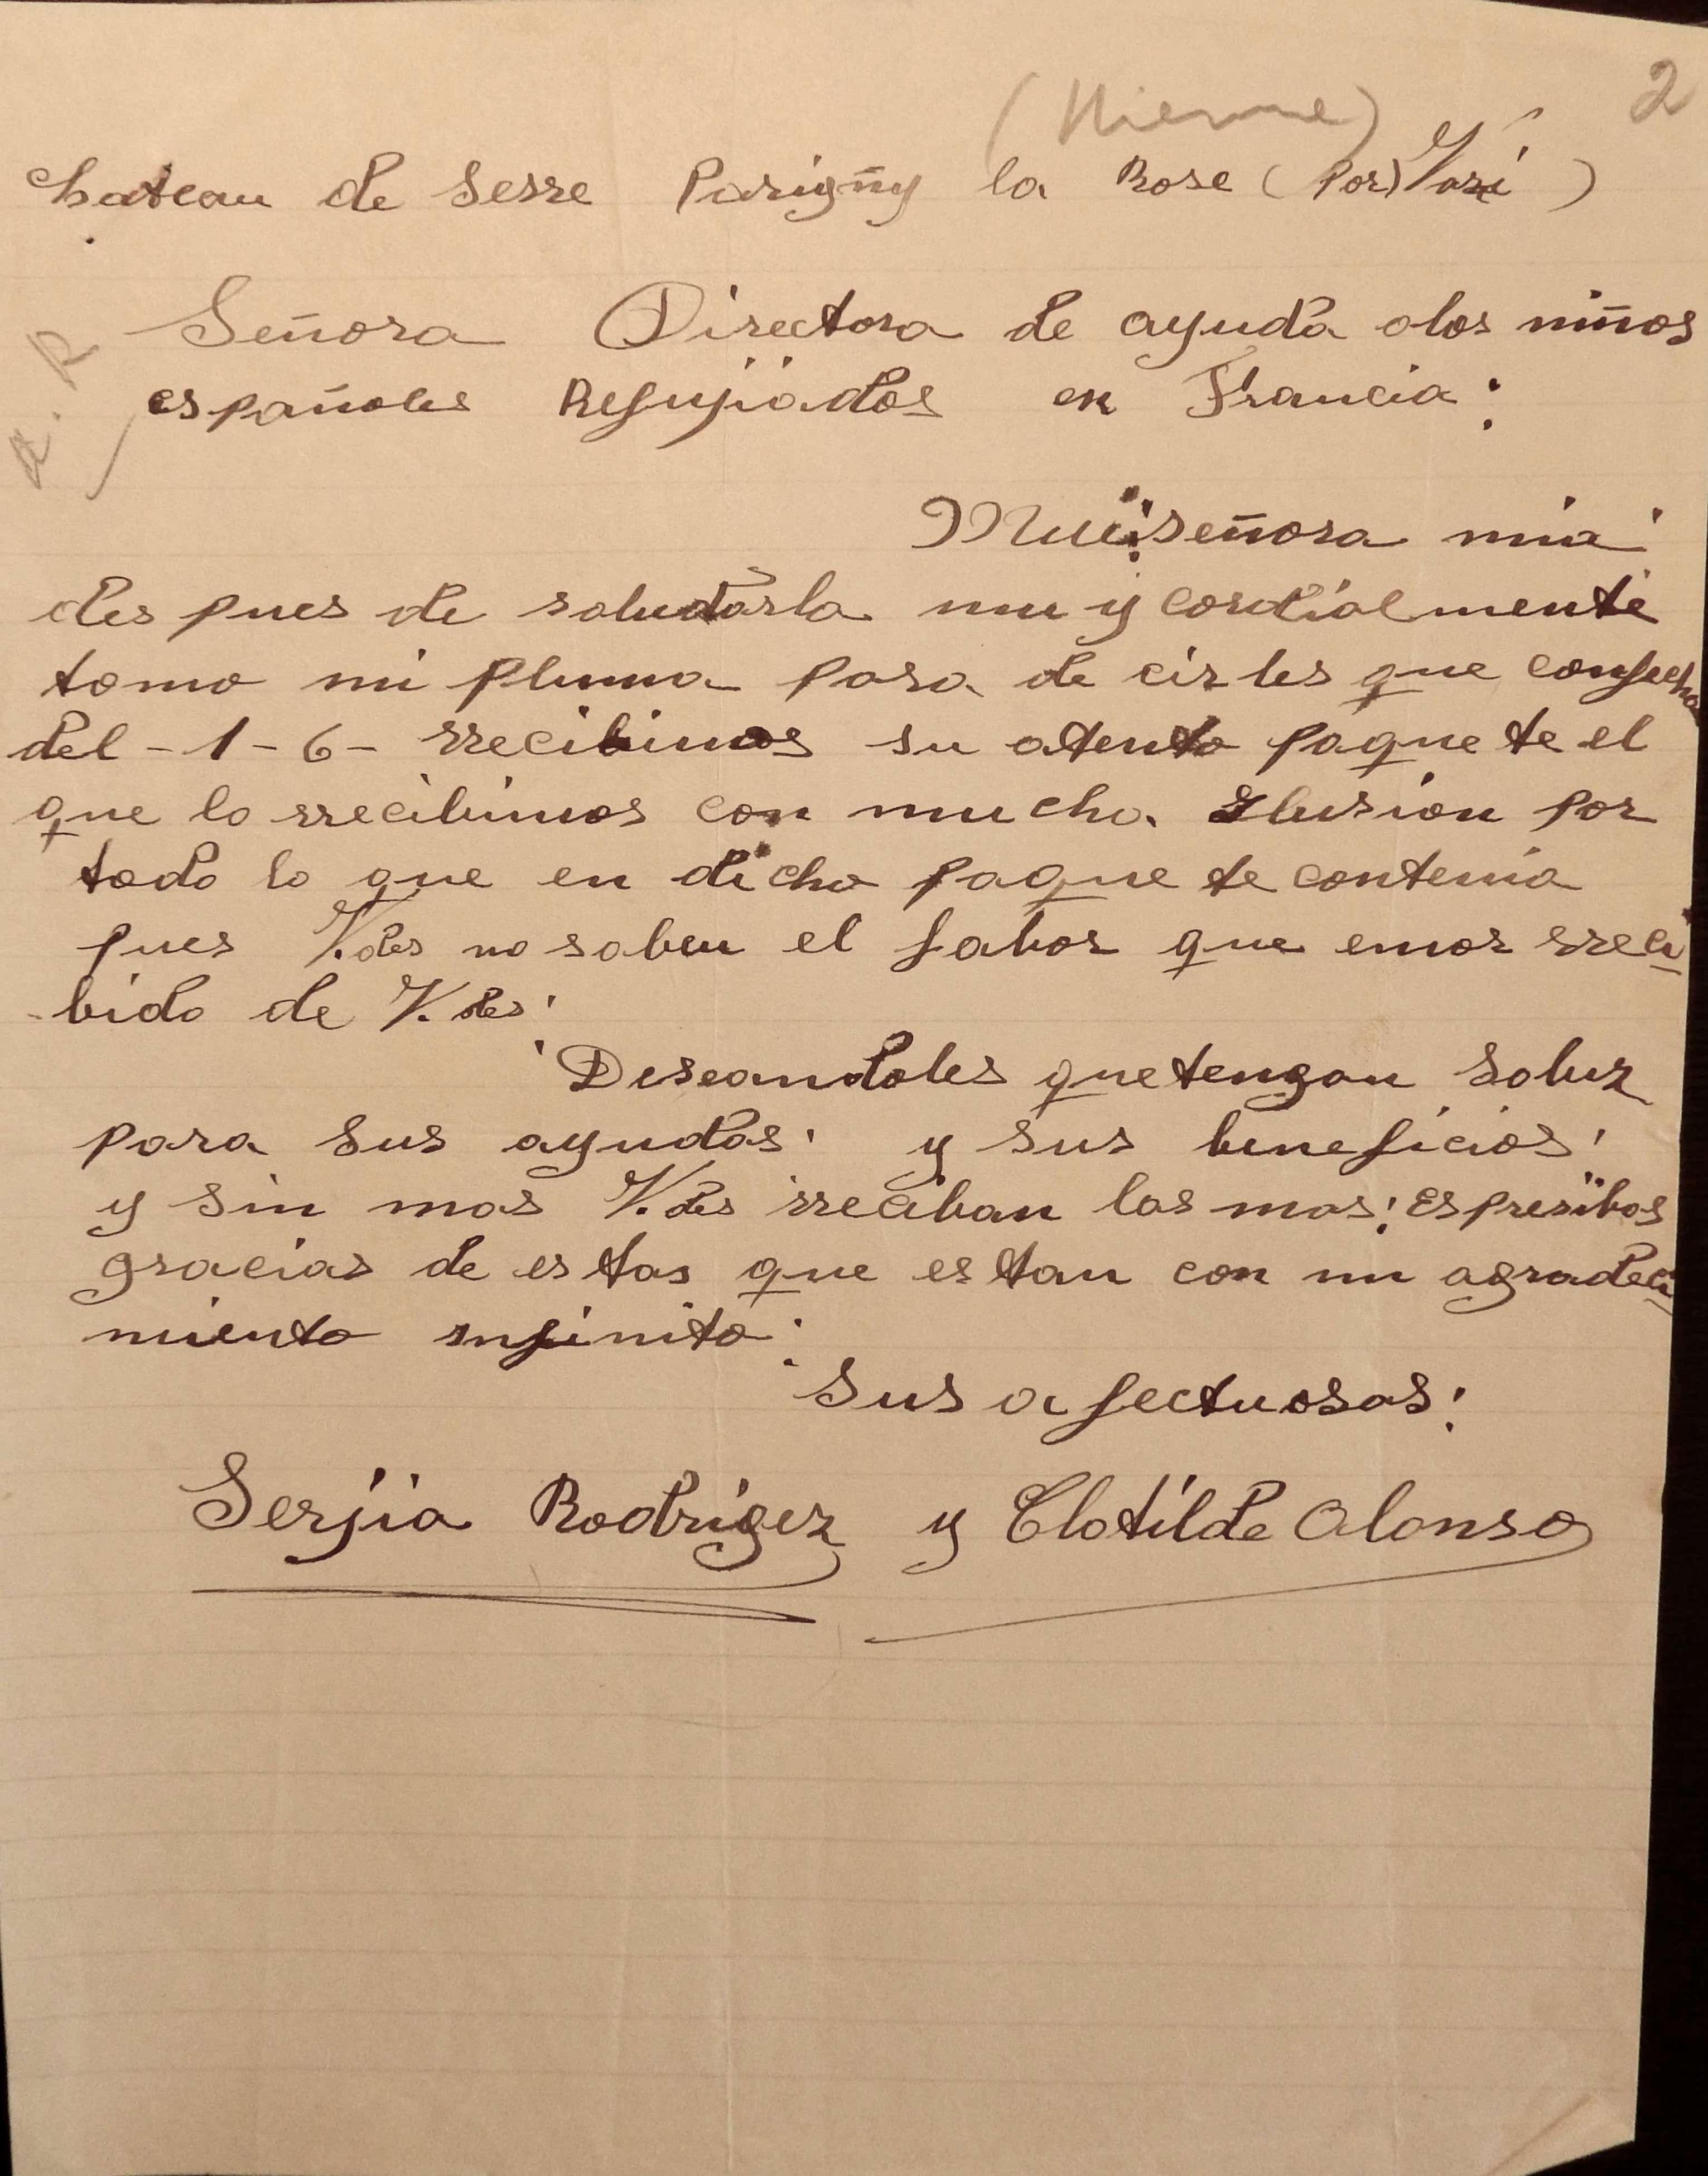 2
(Nievre)
chateau de serre Parigñy la Rose (Por) Varí)
Señora Directora de ayuda a los niños
A. R
españoles Refujiados en Francia:
Mui señora mia
des pues de saludarla mu y cordialmente
tomo mi pluma para de cirles que confecha
del - 1 - 6 - rrecibimos su atento paque te el
que lo rrecibimos con mucha Ilusion por
todo lo que en dicho paque te contenia
pues V.des no saben el fabor que emos rreci
bido de V.des
Deseandoles que tengan saluz
para sus ayudas y sus beneficios
y sin mas V.des rreciban las mas: espresibas
gracias de estas que estan con un agradeci
miento infinito:
sus a fectuosas:
Serjia Rodrigez y Clotilde Alonso